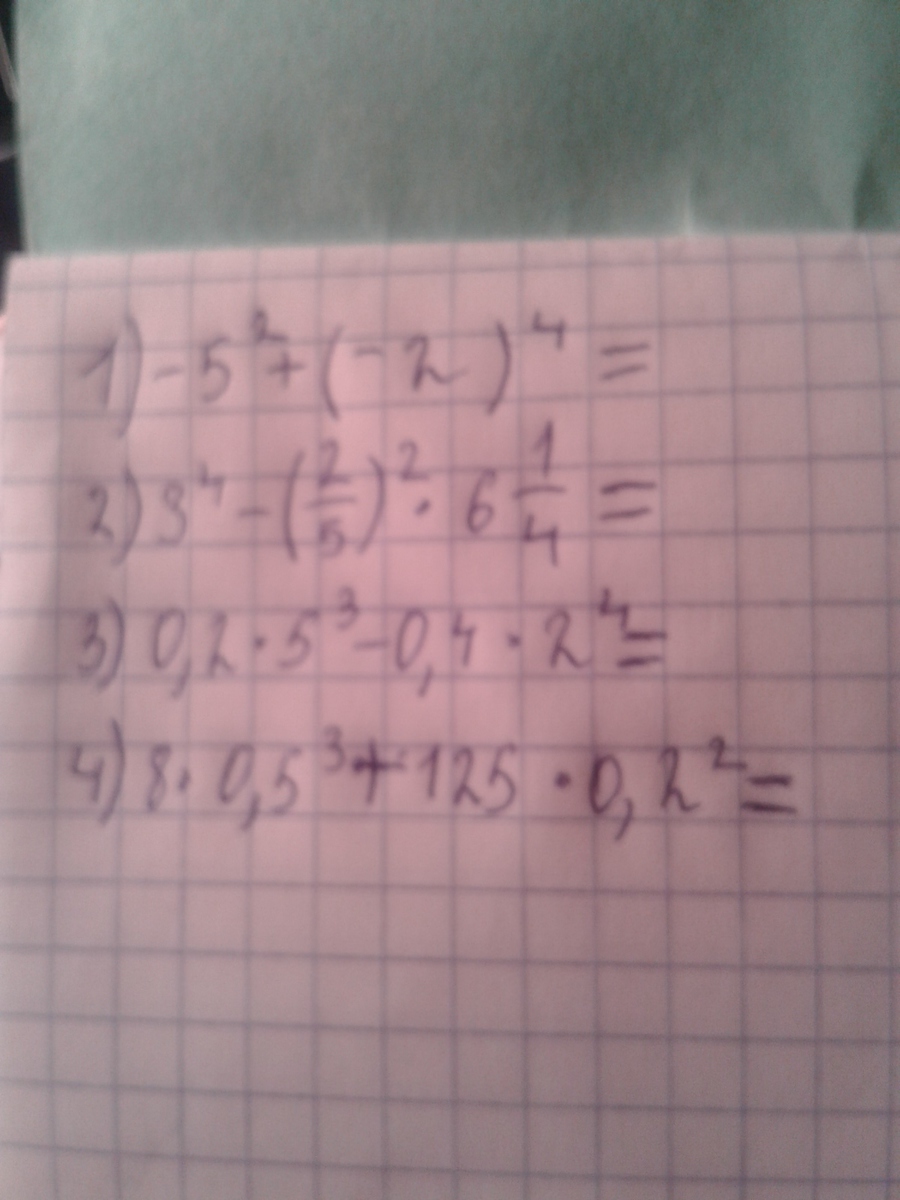 1) -5² + (-2)⁴ =
2) 3⁴ - (2/5)² · 6 1/4 =
3) 0,2 · 5³ - 0,4 · 2⁴ =
4) 8 · 0,5³ + 125 · 0,2² =